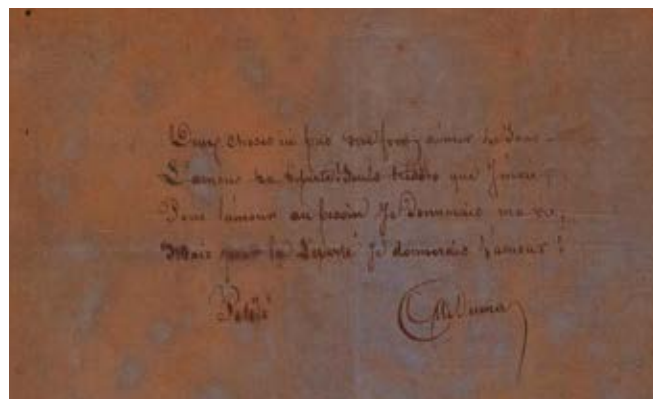 Deux choses ici bas me font aimer le Jour
L'amour la liberté! Seuls trésors que J'envie,
Pour l'amour au besoin Je Donnerais ma vie,
Mais pour la Liberté je donnerais l'amour!
Petöfi